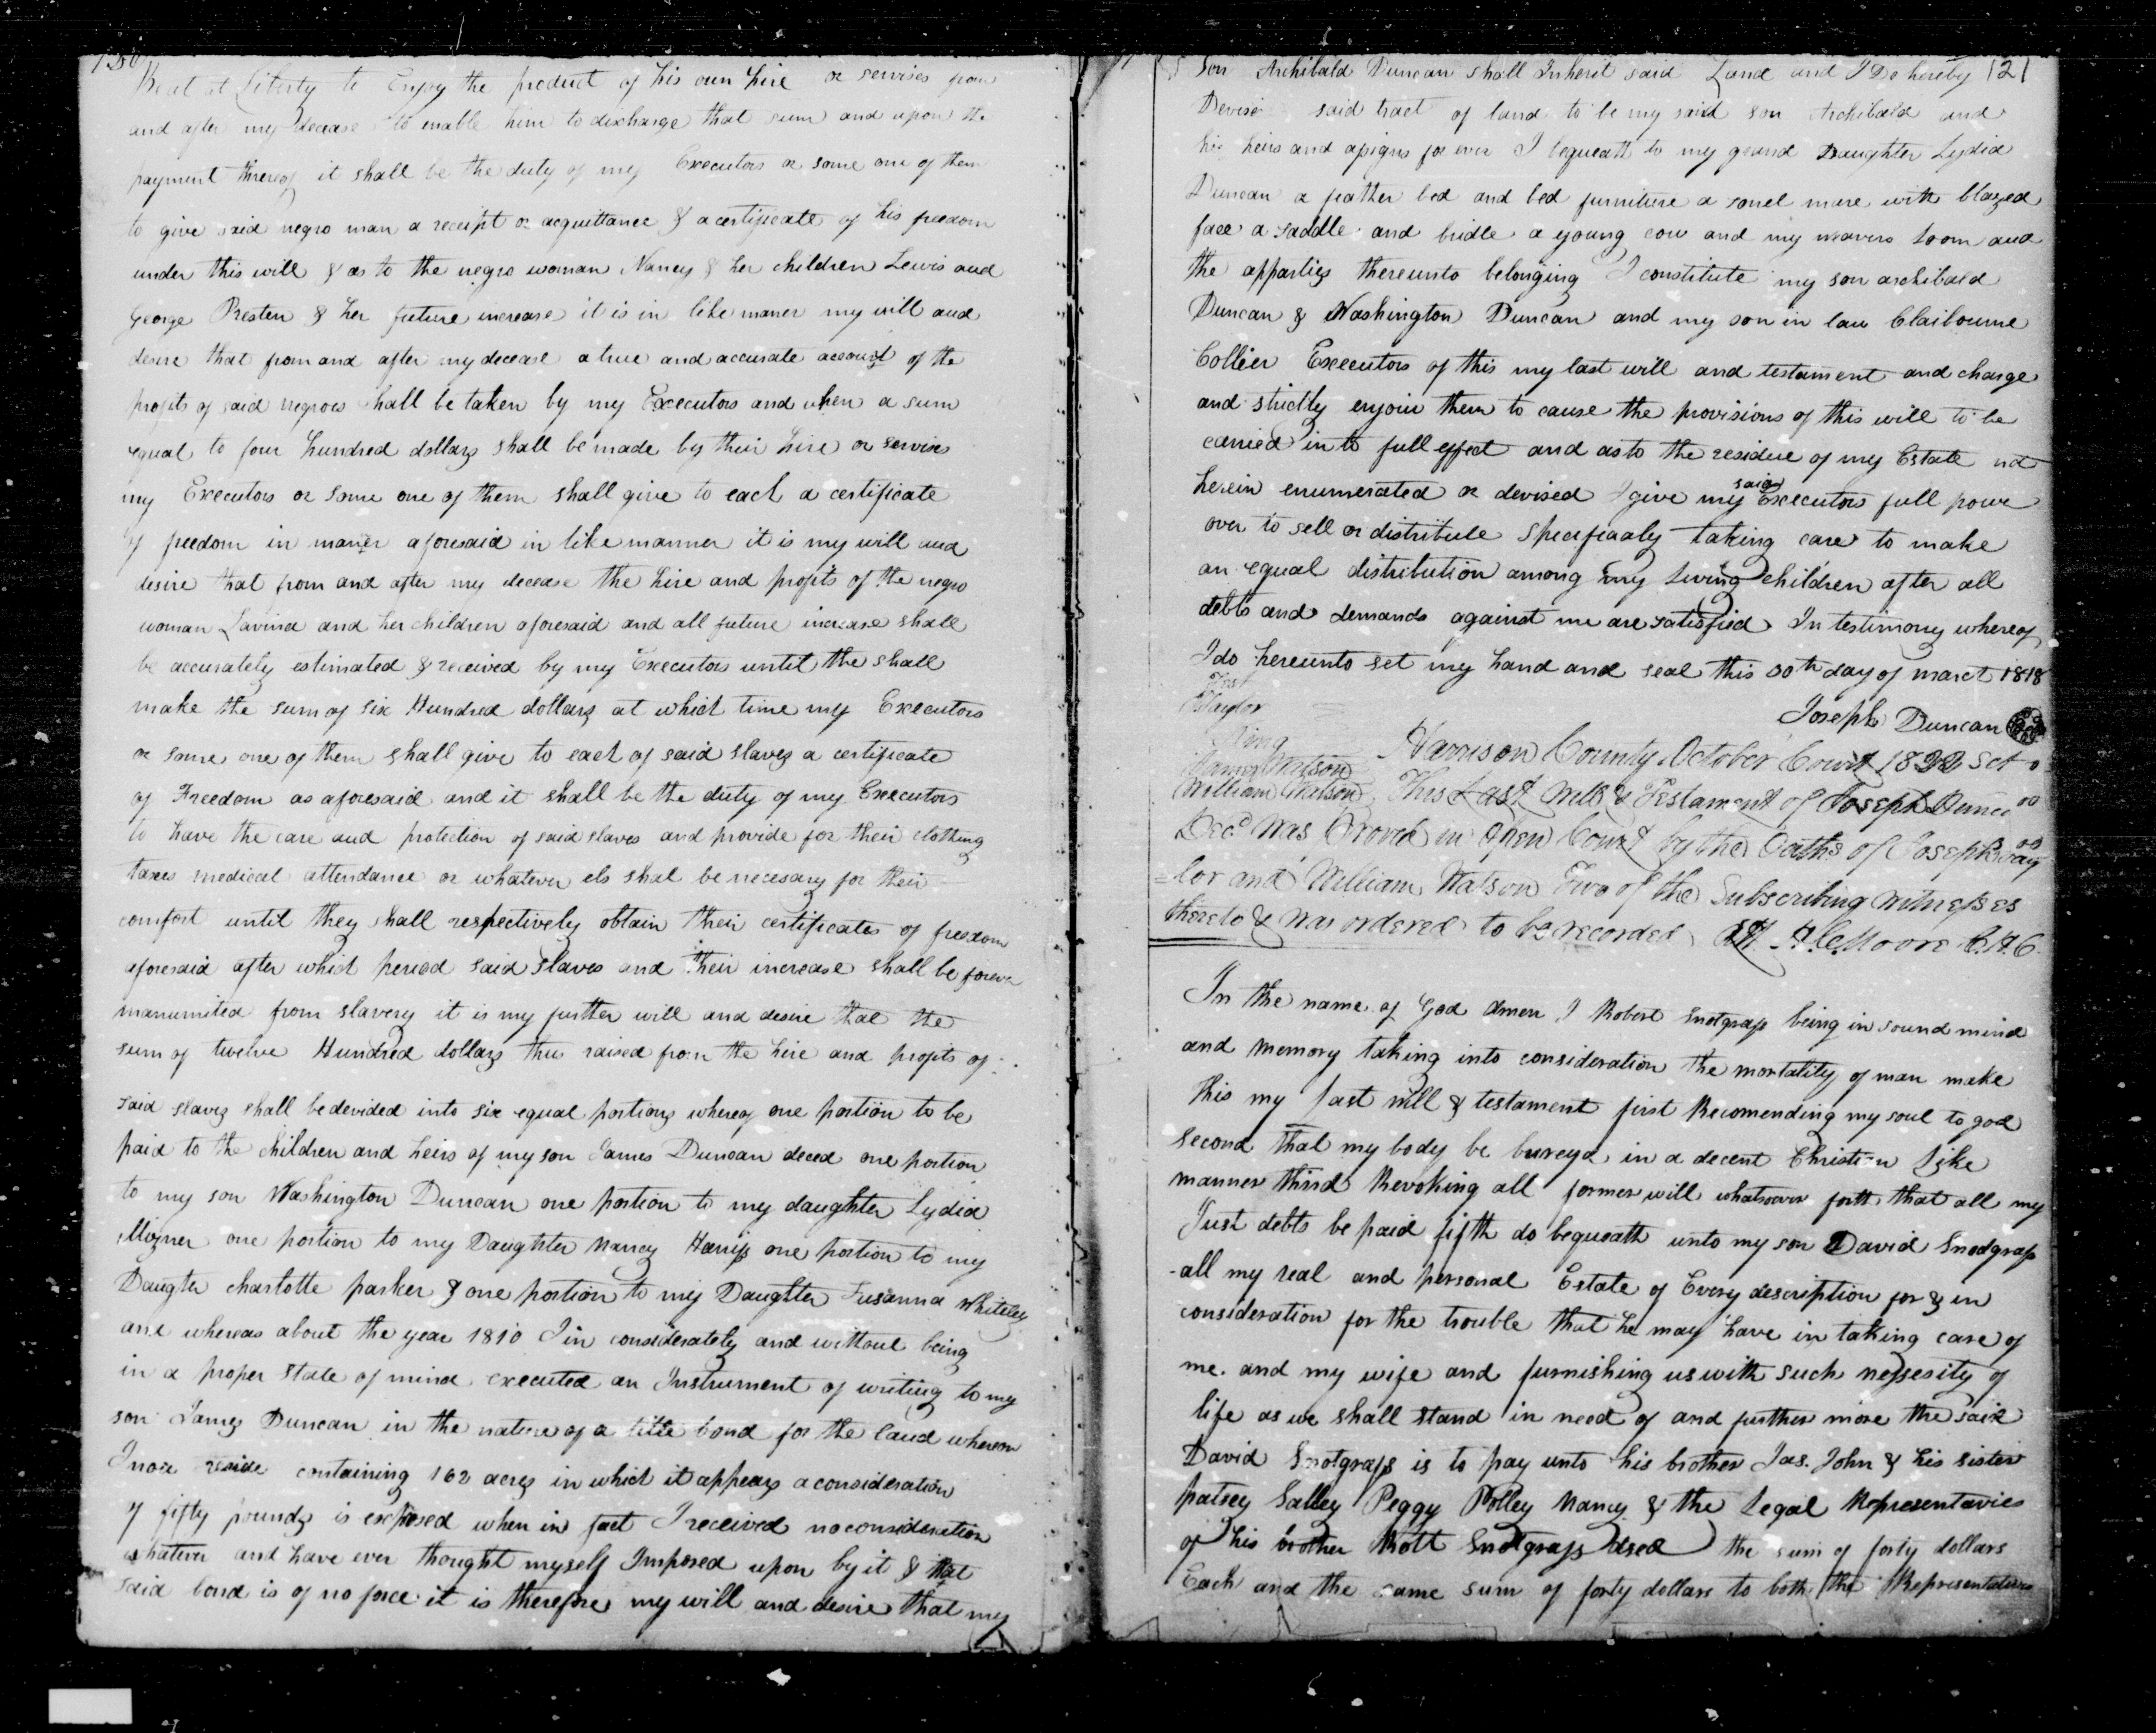 120
be at Liberty to Enjoy the product of his own hire or servises from
and after my decease to enable him to discharge that sum and upon the
payment thereof it shall be the duty of my Executors or some one of them
to give said negro man a receipt or acquittance & a certificate of his freedom
under this will & as to the negro woman Nancy & her children Lewis and
George Presten & her future increase it is in like maner my will and
desire that from and after my decease a true and accurate account of the
profits of said negroes shall be taken by my Executors and when a sum
equal to four hundred dollars shall be made by their hire or servises
my Executors or some one of them shall give to each a certificate
of freedom in maner aforesaid in like manner it is my will and
desire that from and after my decease the hire and profits of the negro
woman Lavina and her children aforesaid and all future increase shall
be accurately estimated & received by my Executors until the shall
make the sum of six Hundred dollars at which time my Executors
or some one of them shall give to each of said slaves a certificate
of Freedom as aforesaid and it shall be the duty of my Executors
to have the care and protection of said slaves and provide for their clothing
taxes medical attendance or whatever els shal be necesary for their
comfort until they shall respectively obtain their certificates of freedom
aforesaid after which period said slaves and their increase shall be forever
manumited from slavery it is my further will and desire that the
sum of twelve Hundred dollars thus raised from the hire and profits of
said slaves shall be devided into six equal portions whereof one portion to be
paid to the children and heirs of my son James Duncan deced one portion
to my son Washington Duncan one portion to my daughter Lydia
Mizner one portion to my Daughter Nancy Harris one portion to my
Daugter charlotte parker & one portion to my Daughter Susanna Whiteley
and whereas about the year 1810 I in considerately and without being
in a proper state of mind executed an Instrument of writing to my
son James Duncan in the nature of a title bond for the land whereon
I now reside containing 162 acres in which it appears a consideration
of fifty pounds is expresed when in fact I received no consideration
whatever and have ever thought myself Imposed upon by it & that
said bond is of no force it is therefore my will and desire that my
son Archibald Duncan shall Inherit said Land and I Do hereby 121
Devise said tract of land to be my said son Archibald and
his heirs and assigns for ever I bequeath to my grand Daughter Lydia
Duncan a feather bed and bed furniture a sorrel mare with blazed
face a saddle and bridle a young cow and my weavers loom and
the apparties thereunto belonging I constitute my son archibald
Duncan & Washington Duncan and my son in law Claibourne
Collier Executors of this my last will and testament and charge
and strictly enjoin them to cause the provisions of this will to be
carried into full effect and as to the residue of my Estate not
herein enumerated or devised I give my said Executors full power
over to sell or distribute specificaaly taking care to make
an equal distribution among my living children after all
debts and demands against me are satisfied In testimony whereof
I do hereunto set my hand and seal this 30th day of march 1818
Test
Taylor
Joseph Duncan
King
Harrison County October Court 1822 Sct
James Watson
William Watson This Last Will & Testament of Joseph Duncan
Decd was Proved in Open Court by the Oaths of Joseph Tay
=lor and William Watson Two of the Subscribing Witnesses
thereto & was ordered to be recorded Att H. C. Moore C.H.C.
In the name of God Amen I Robert Snotgrass being in sound mind
and memory taking into consideration the mortality of man make
this my last will & testament first Recomending my soul to god
second that my body be bureyd in a decent Christian like
manner third Revoking all former will whatsoever forth that all my
Just debts be paid fifth do bequeath unto my son David Snodgrass
all my real and personal Estate of Every description for & in
consideration for the trouble that he may have in taking care of
me and my wife and furnishing us with such nessesity of
life as we shall stand in need of and further more the said
David Snotgrass is to pay unto his brother Jas. John & his sister
patsey Salley Peggy Polley Nancy & the Legal Representavies
of his brother Robt Snotgrass dsed the sum of forty dollars
Each and the same sum of forty dollars to both the Representatives